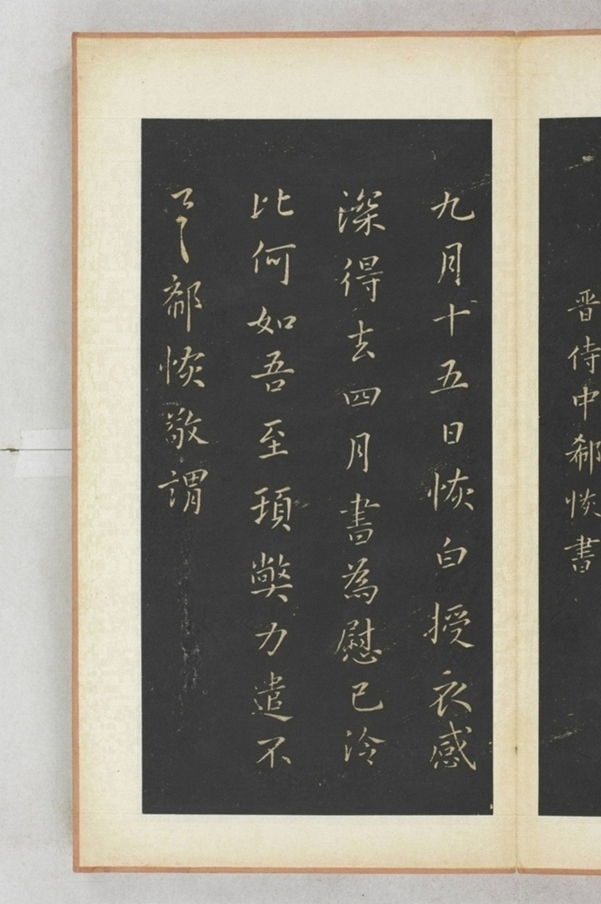 晋侍中郗恢書
九月十五日恢白授衣感
深得去四月書為慰已冷
比何如吾至頊弊力遣不
具郗恢敬謂